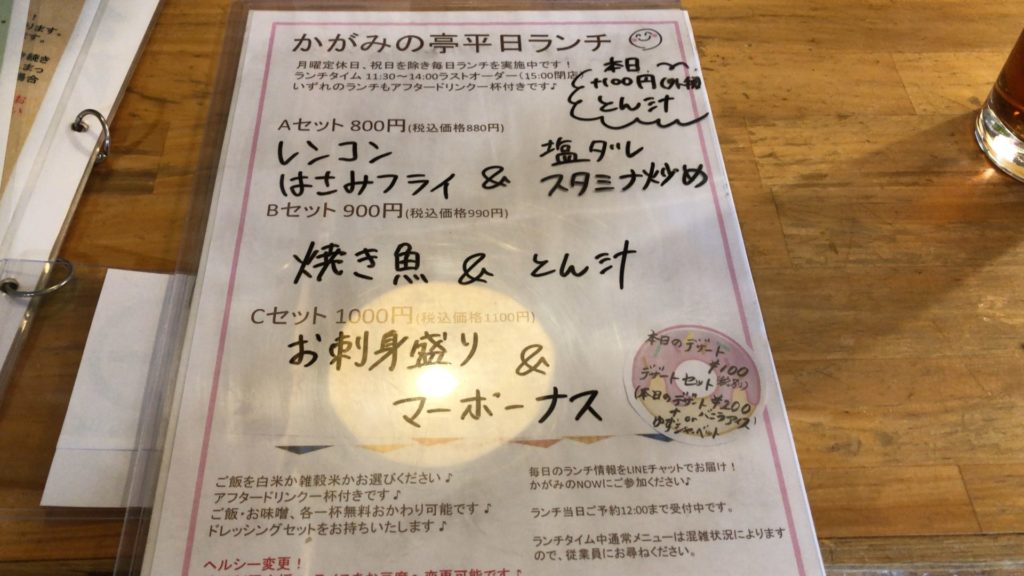 かがみの亭平日ランチ
月曜定休日、祝日を除き毎日ランチを実施中です！
ランチタイム 11:30～14:00ラストオーダー（15:00閉店）
いずれのランチもアフタードリンク一杯付きです♪
本日
+100円
とん汁
Aセット 800円(税込価格880円)
レンコン
はさみフライ & 塩ダレ
スタミナ炒め
Bセット 900円(税込価格990円)
焼き魚 & とん汁
Cセット 1000円(税込価格1100円)
お刺身盛り &
マーボーナス
本日のデザート
¥100
デザートセット
本日のデザート ¥200
ゆずシャーベット
ご飯を白米か雑穀米かお選びください♪
アフタードリンク一杯付きです♪
ご飯・お味噌、各一杯無料おかわり可能です♪
ドレッシングセットをお持ちいたします♪
毎日のランチ情報をLINEチャットでお届け！
かがみのNOWにご参加ください♪
ランチ当日ご予約12:00まで受付中です。
ランチタイム中通常メニューは混雑状況によります
ので、従業員にお尋ねください。
ヘルシー変更！